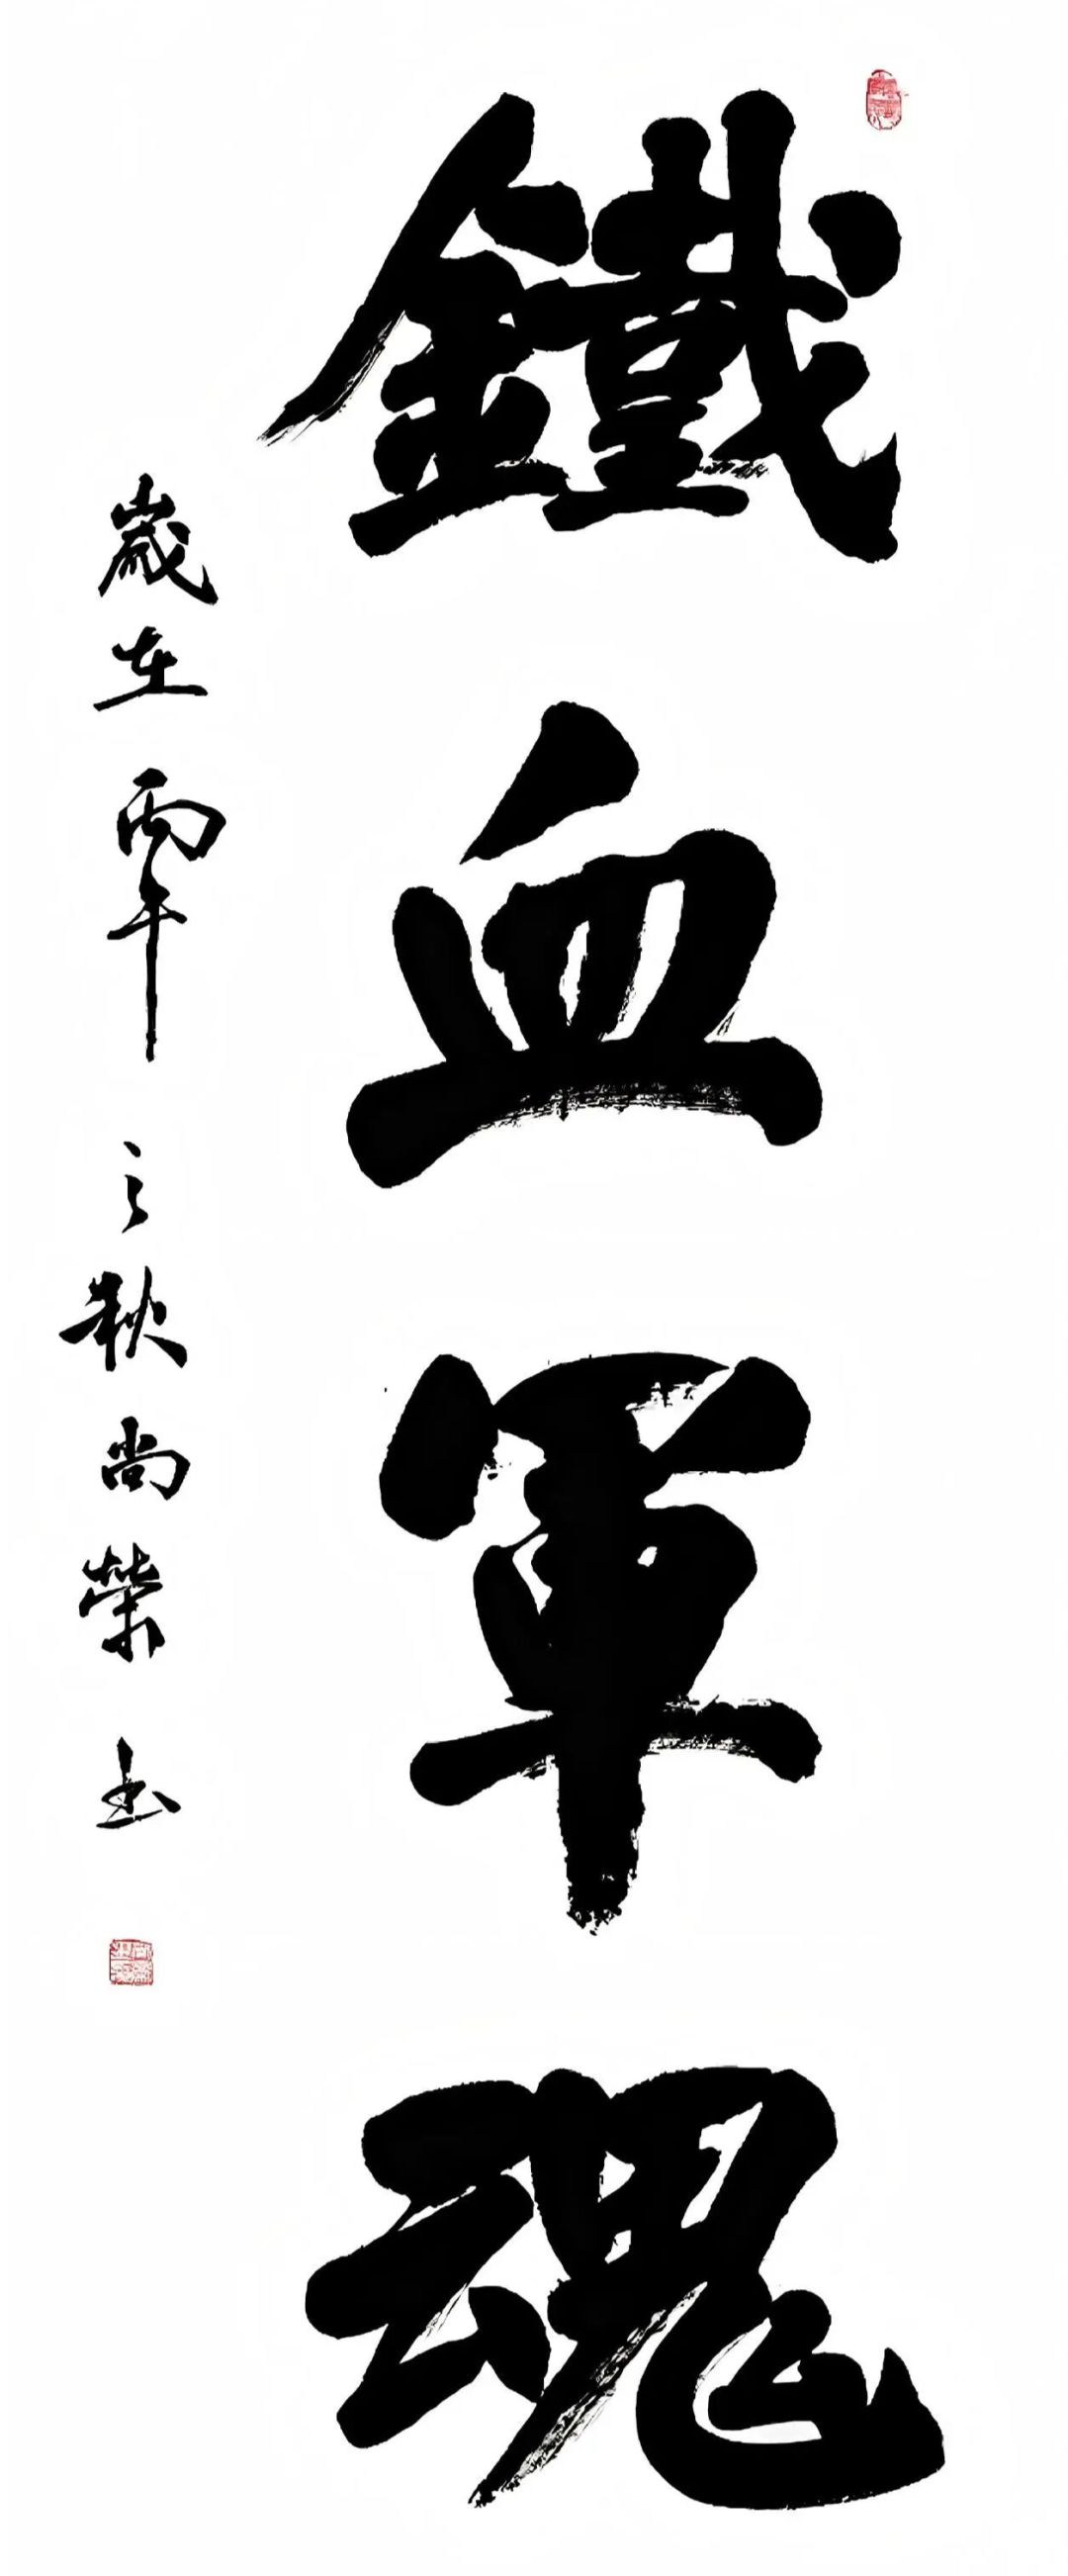 鐵血軍魂
歲在丙午之秋尚榮书